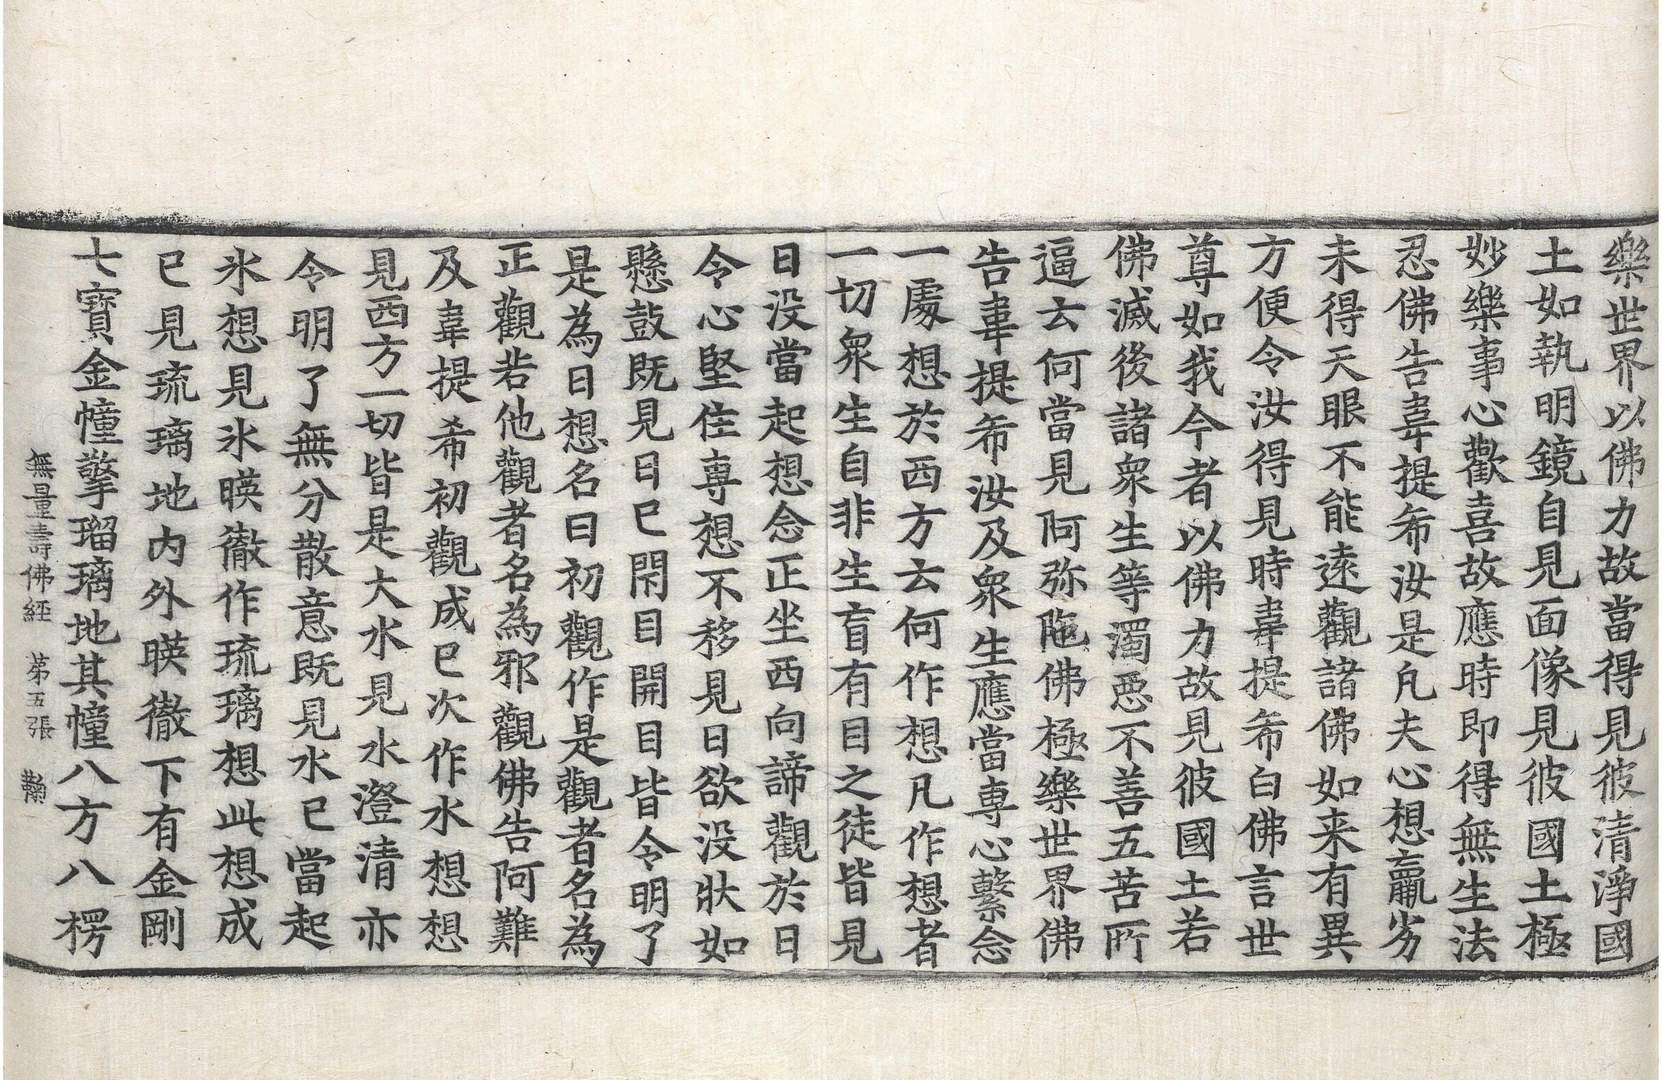 樂世界以佛力故當得見彼清淨國
土如執明鏡自見面像見彼國土極
妙樂事心歡喜故應時即得無生法
忍佛告韋提希汝是凡夫心想羸劣
未得天眼不能遠觀諸佛如来有異
方便令汝得見時韋提希白佛言世
尊如我今者以佛力故見彼國土若
佛滅後諸衆生等濁惡不善五苦所
逼云何當見阿弥陁佛極樂世界佛
告韋提希汝及衆生應當專心繫念
一處想於西方云何作想凡作想者
一切衆生自非生盲有目之徒皆見
日没當起想念正坐西向諦觀於日
令心堅住專想不移見日欲没狀如
懸鼓既見日已閇目開目皆令明了
是為日想名曰初觀作是觀者名為
正觀若他觀者名為邪觀佛告阿難
及韋提希初觀成已次作水想想
見西方一切皆是大水見水澄清亦
令明了無分散意既見水已當起
氷想見氷暎徹作琉璃想此想成
已見琉璃地内外暎徹下有金剛
七寶金幢擎瑠璃地其幢八方八楞
無量壽佛經　第五張